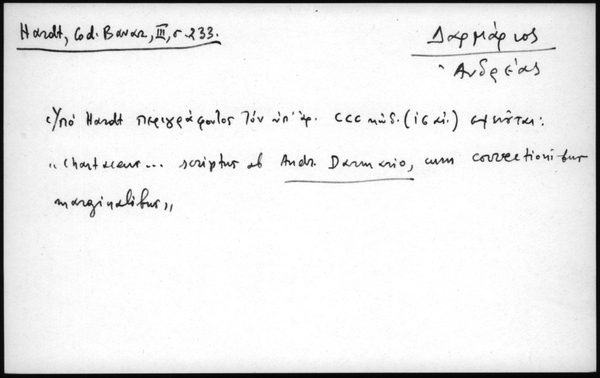 Hardt, Cod. Bavar., III, σ. 233.
Δαρμάριος
Ἀνδρέας
Ὑπό Hardt περιγράφοντος τόν ὑπ' ἀρ. CCC κώδ. (ις αἰ.)
„chartaceus... scriptus ab Andr. Darmario, cum correctionibus
marginalibus„